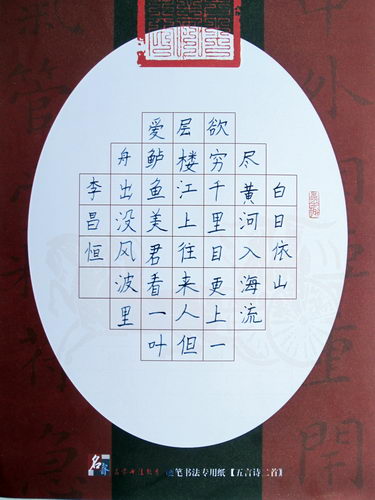 白日依山
尽黄河入海流
欲穷千里目更上一
层楼江上往来人但
爱鲈鱼美君看一叶
舟出没风波里
李昌恒
笔书法专用纸【五言诗二首】